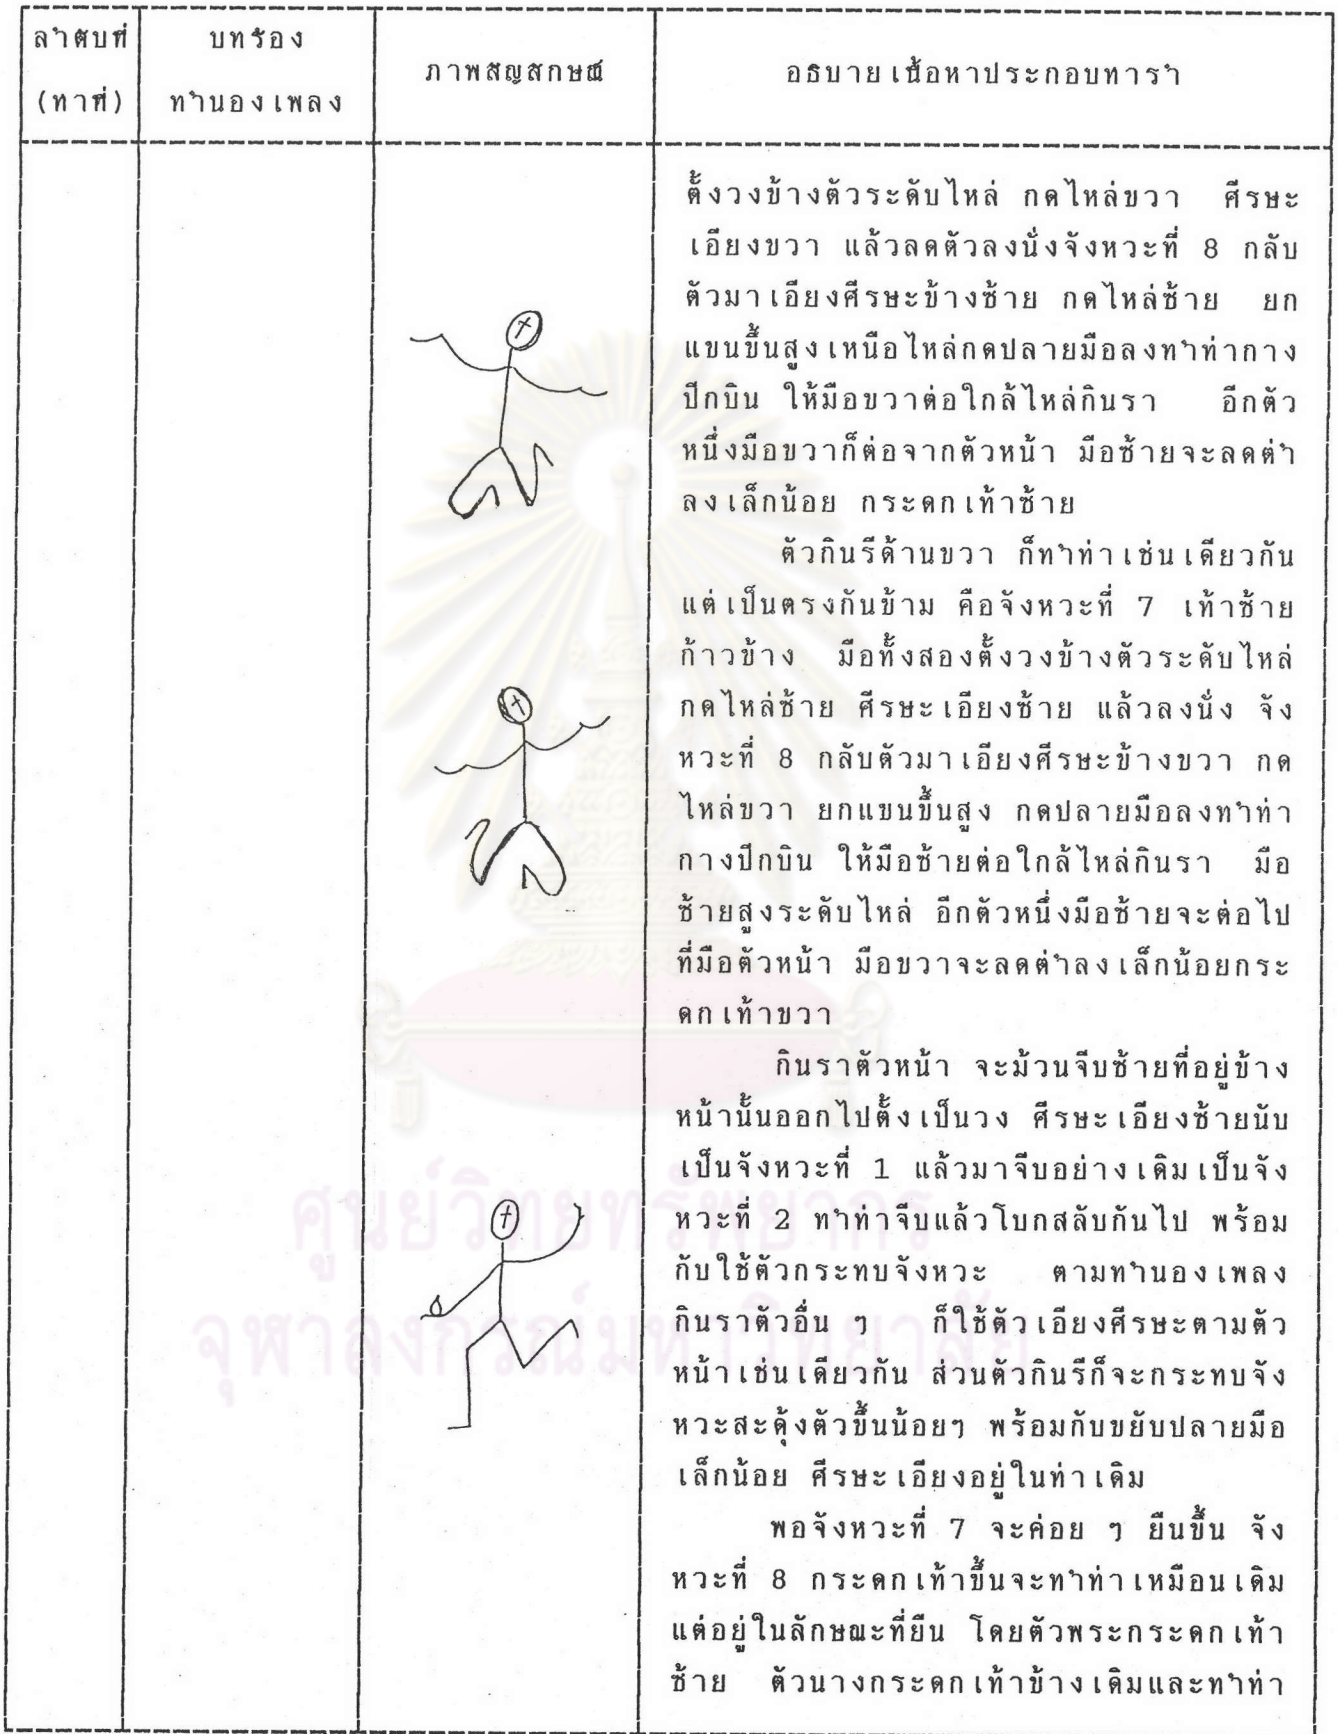 ลำดับที่
(ทาที่)
บทร้อง
ทำนองเพลง
ภาพสัญลักษณ์
อธิบายเนื้อหาประกอบทารำ
ตั้งวงข้างตัวระดับไหล่ กดไหล่ขวา ศีรษะ
เอียงขวา แล้วลดตัวลงนั่งจังหวะที่ 8 กลับ
ตัวมาเอียงศีรษะข้างซ้าย กดไหล่ซ้าย ยก
แขนขึ้นสูงเหนือไหล่กดปลายมือลงทำท่ากาง
ปีกบิน ให้มือขวาต่อใกล้ไหล่กินรา อีกตัว
หนึ่งมือขวาก็ต่อจากตัวหน้า มือซ้ายจะลดต่ำ
ลงเล็กน้อย กระดกเท้าซ้าย
ตัวกินรีด้านขวา ก็ทำท่าเช่นเดียวกัน
แต่เป็นตรงกันข้าม คือจังหวะที่ 7 เท้าซ้าย
ก้าวข้าง มือทั้งสองตั้งวงข้างตัวระดับไหล่
กดไหล่ซ้าย ศีรษะเอียงซ้าย แล้วลงนั่ง จัง
หวะที่ 8 กลับตัวมาเอียงศีรษะข้างขวา กด
ไหล่ขวา ยกแขนขึ้นสูง กดปลายมือลงทำท่า
กางปีกบิน ให้มือซ้ายต่อใกล้ไหล่กินรา มือ
ซ้ายสูงระดับไหล่ อีกตัวหนึ่งมือซ้ายจะต่อไป
ที่มือตัวหน้า มือขวาจะลดต่ำลงเล็กน้อยกระ
ดกเท้าขวา
กินราตัวหน้า จะม้วนจีบซ้ายที่อยู่ข้าง
หน้านั้นออกไปตั้งเป็นวง ศีรษะเอียงซ้ายนับ
เป็นจังหวะที่ 1 แล้วมาจีบอย่างเดิมเป็นจัง
หวะที่ 2 ทำท่าจีบแล้วโบกสลับกันไป พร้อม
กับใช้ตัวกระทบจังหวะ ตามทำนองเพลง
กินราตัวอื่น ๆ ก็ใช้ตัวเอียงศีรษะตามตัว
หน้าเช่นเดียวกัน ส่วนตัวกินรีก็จะกระทบจัง
หวะสะดุ้งตัวขึ้นน้อยๆ พร้อมกับขยับปลายมือ
เล็กน้อย ศีรษะเอียงอยู่ในท่าเดิม
พอจังหวะที่ 7 จะค่อย ๆ ยืนขึ้น จัง
หวะที่ 8 กระดกเท้าขึ้นจะทำท่าเหมือนเดิม
แต่อยู่ในลักษณะที่ยืน โดยตัวพระกระดกเท้า
ซ้าย ตัวนางกระดกเท้าข้างเดิมและทำท่า
ศูนย์วิทยทรัพยากร
จุฬาลงกรณ์มหาวิทยาลัย